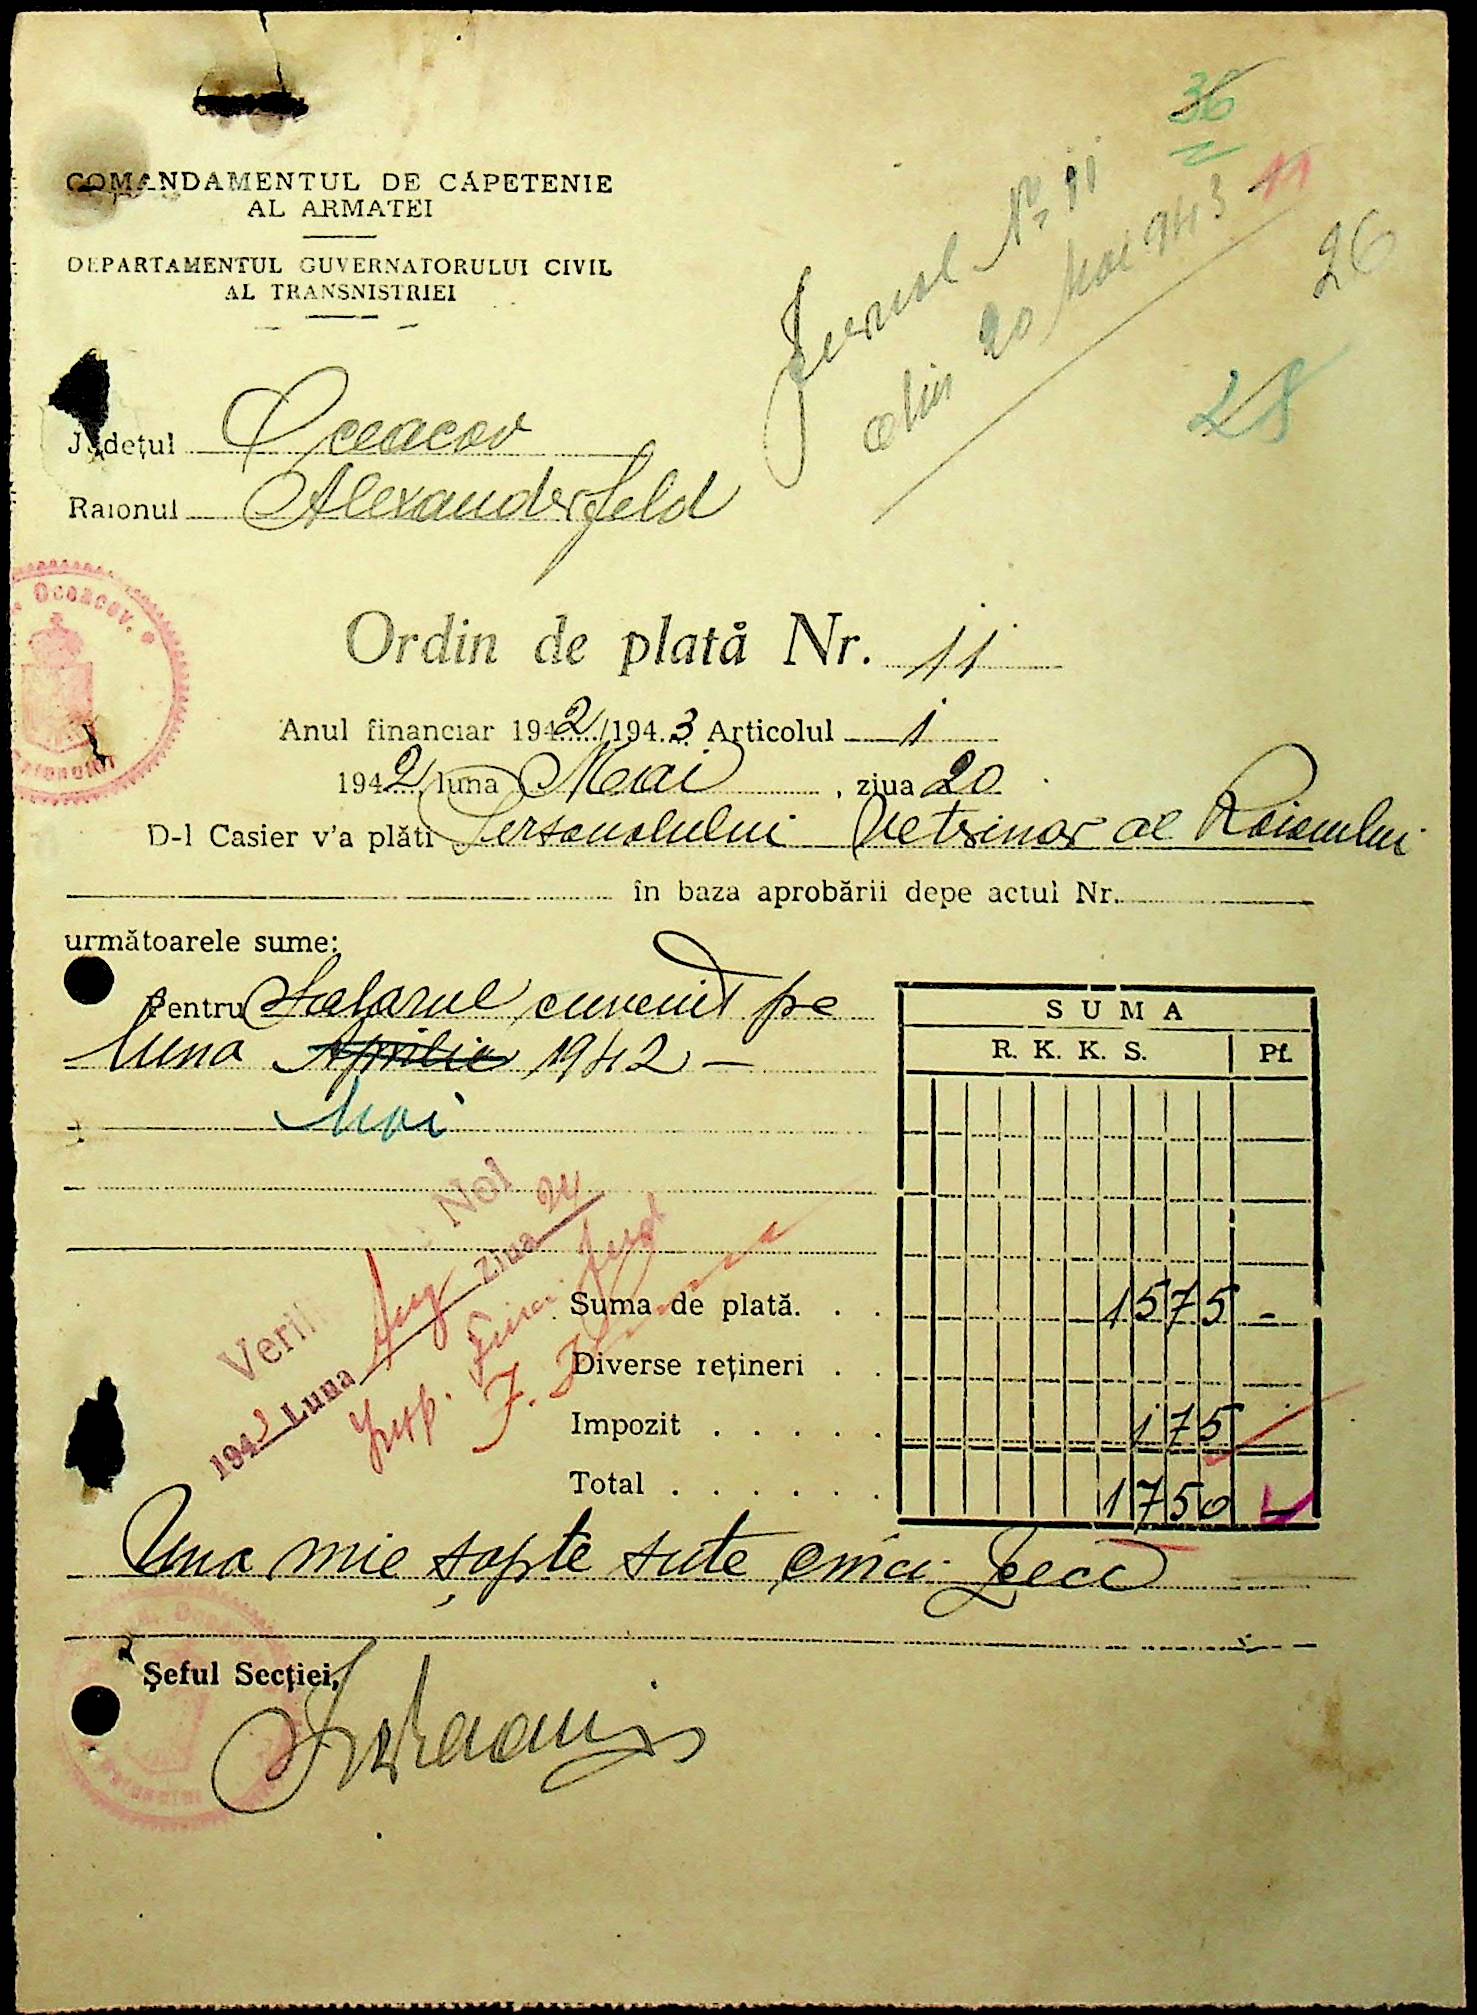 36
COMANDAMENTUL DE CĂPETENIE
AL ARMATEI
DEPARTAMENTUL GUVERNATORULUI CIVIL
AL TRANSNISTRIEI
Jurnal No 11
din 20 Mai 943
11
26
28
Județul Oceacov
Raionul Alexanderfeld
Oceacov.
Ordin de plată Nr. 11
Anul financiar 1942/1943 Articolul 1
1942 luna Mai, ziua 20
D-l Casier v'a plăti Personalului Vetrinar al Raionului
în baza aprobării depe actul Nr.
următoarele sume:
Pentru Salarul cuvenit pe
luna Aprilie 1942 —
Mai
SUMA
R. K. K. S. Pf.
Noi
Verifi
1943 Luna Aug Ziua 24
Insp.
Suma de plată. . . 1575 -
Diverse rețineri . .
Impozit . . . . . 175
Total . . . . . . 1750 —
Una mie șapte sute cinci zeci
Șeful Secției,